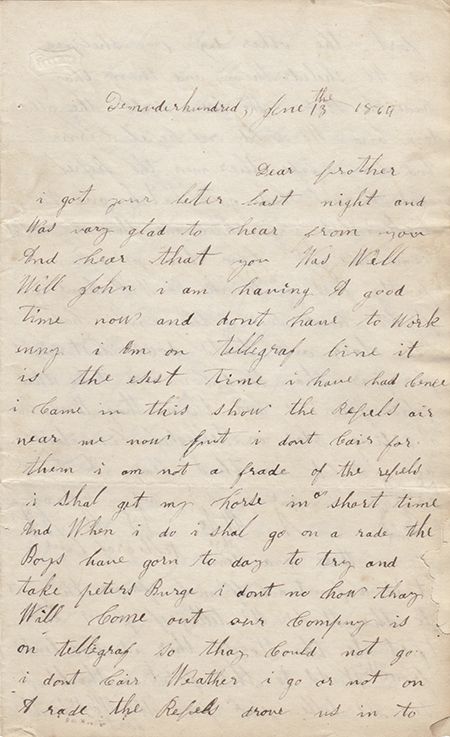 Demuder hundred, June the 13 1864
Dear Brother
i got your leter last night and
Was vary glad to hear from you
And hear that you Was Well
Well John i am having A good
time now and dont have to Work
enny i Am on tellegraf line it
is the esest time i have had cence
i came in this show the Repels air
near me now But i dont Cair for
them i am not a frade of the repels
i shal get my horse in a short time
And When i do i shal go on a rade the
Boys have gorn to day to try and
take peters Burge i dont no how thay
Will Come out our Company is
on tellegraf so thay Could not go
i dont Cair Weather i go or not on
A rade the Repels drove us in to